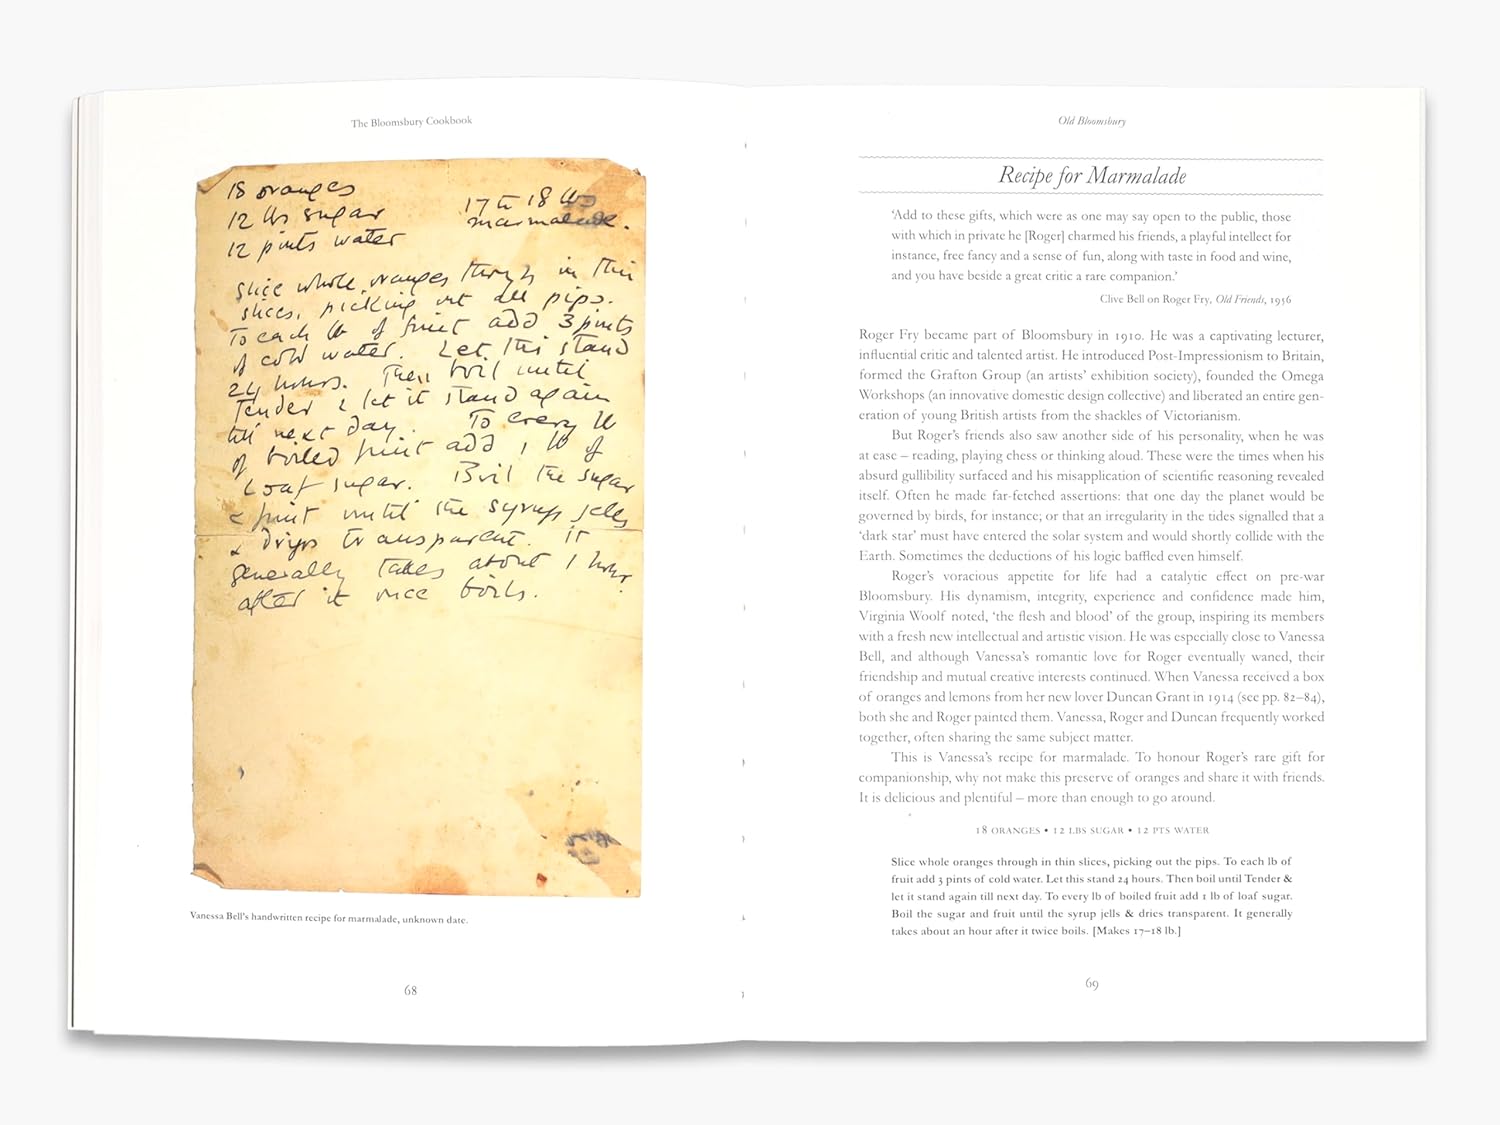 The Bloomsbury Cookbook
18 oranges
12 lbs sugar
12 pints water
17 to 18 lbs
marmalade.
Slice whole oranges through in thin
slices, picking out all pips.
To each lb of fruit add 3 pints
of cold water. Let this stand
24 hours. Then boil until
Tender & let it stand again
till next day. To every lb
of boiled fruit add 1 lb of
Loaf sugar. Boil the sugar
& fruit until the syrup jells
& drips transparent. It
generally takes about 1 hour
after it once boils.
Vanessa Bell's handwritten recipe for marmalade, unknown date.
68
Old Bloomsbury
Recipe for Marmalade
‘Add to these gifts, which were as one may say open to the public, those
with which in private he [Roger] charmed his friends, a playful intellect for
instance, free fancy and a sense of fun, along with taste in food and wine,
and you have beside a great critic a rare companion.’
Clive Bell on Roger Fry, Old Friends, 1956
Roger Fry became part of Bloomsbury in 1910. He was a captivating lecturer,
influential critic and talented artist. He introduced Post-Impressionism to Britain,
formed the Grafton Group (an artists’ exhibition society), founded the Omega
Workshops (an innovative domestic design collective) and liberated an entire gen-
eration of young British artists from the shackles of Victorianism.
But Roger’s friends also saw another side of his personality, when he was
at ease – reading, playing chess or thinking aloud. These were the times when his
absurd gullibility surfaced and his misapplication of scientific reasoning revealed
itself. Often he made far-fetched assertions: that one day the planet would be
governed by birds, for instance; or that an irregularity in the tides signalled that a
‘dark star’ must have entered the solar system and would shortly collide with the
Earth. Sometimes the deductions of his logic baffled even himself.
Roger’s voracious appetite for life had a catalytic effect on pre-war
Bloomsbury. His dynamism, integrity, experience and confidence made him,
Virginia Woolf noted, ‘the flesh and blood’ of the group, inspiring its members
with a fresh new intellectual and artistic vision. He was especially close to Vanessa
Bell, and although Vanessa’s romantic love for Roger eventually waned, their
friendship and mutual creative interests continued. When Vanessa received a box
of oranges and lemons from her new lover Duncan Grant in 1914 (see pp. 82–84),
both she and Roger painted them. Vanessa, Roger and Duncan frequently worked
together, often sharing the same subject matter.
This is Vanessa’s recipe for marmalade. To honour Roger’s rare gift for
companionship, why not make this preserve of oranges and share it with friends.
It is delicious and plentiful – more than enough to go around.
18 ORANGES • 12 LBS SUGAR • 12 PTS WATER
Slice whole oranges through in thin slices, picking out the pips. To each lb of
fruit add 3 pints of cold water. Let this stand 24 hours. Then boil until Tender &
let it stand again till next day. To every lb of boiled fruit add 1 lb of loaf sugar.
Boil the sugar and fruit until the syrup jells & dries transparent. It generally
takes about an hour after it twice boils. [Makes 17–18 lb.]
69